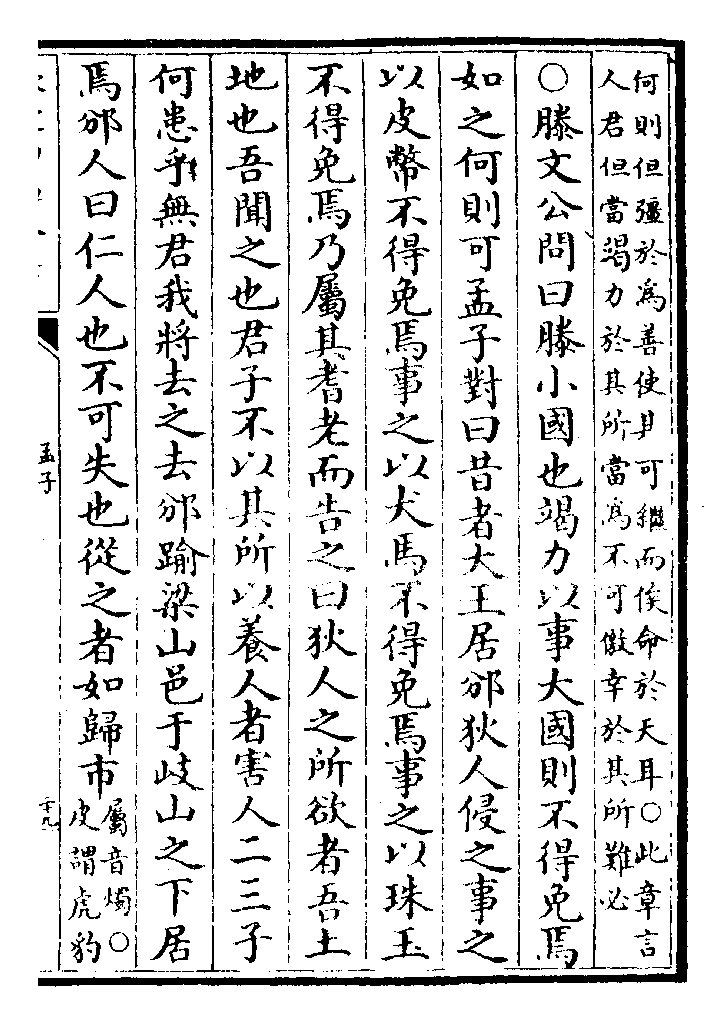 何則但彊於為善使其可繼而俟命於天耳〇此章言
人君但當竭力於其所當為不可徼幸於其所難必
〇滕文公問曰滕小國也竭力以事大國則不得免焉
如之何則可孟子對曰昔者大王居邠狄人侵之事之
以皮幣不得免焉事之以犬馬不得免焉事之以珠玉
不得免焉乃屬其耆老而告之曰狄人之所欲者吾土
地也吾聞之也君子不以其所以養人者害人二三子
何患乎無君我將去之去邠踰梁山邑于岐山之下居
焉邠人曰仁人也不可失也從之者如歸市
屬音燭〇
皮謂虎豹
孟子